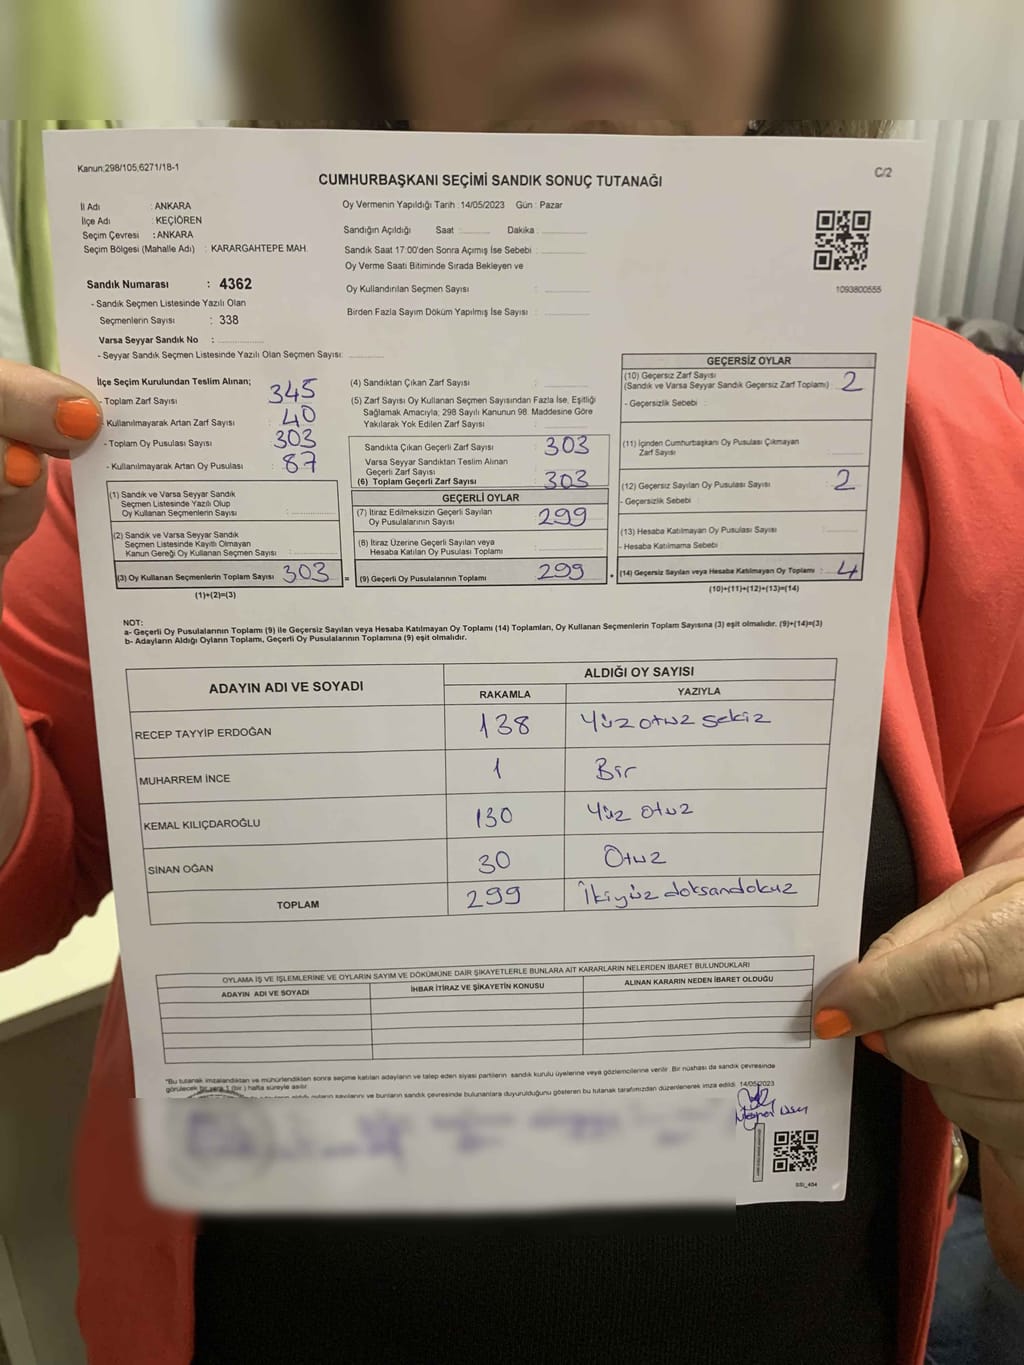 Kanun:298/105;6271/18-1
C/2
CUMHURBAŞKANI SEÇİMİ SANDIK SONUÇ TUTANAĞI
İl Adı : ANKARA
İlçe Adı : KEÇİÖREN
Seçim Çevresi : ANKARA
Seçim Bölgesi (Mahalle Adı) : KARARGAHTEPE MAH.
Sandık Numarası : 4362
- Sandık Seçmen Listesinde Yazılı Olan
Seçmenlerin Sayısı : 338
Varsa Seyyar Sandık No :
- Seyyar Sandık Seçmen Listesinde Yazılı Olan Seçmen Sayısı:
Oy Vermenin Yapıldığı Tarih : 14/05/2023 Gün : Pazar
Sandığın Açıldığı Saat : Dakika :
Sandık Saat 17:00'den Sonra Açımış İse Sebebi :
Oy Verme Saati Bitiminde Sırada Bekleyen ve
Oy Kullandırılan Seçmen Sayısı :
Birden Fazla Sayım Döküm Yapılmış İse Sayısı :
1093800555
İlçe Seçim Kurulundan Teslim Alınan;
- Toplam Zarf Sayısı : 345
- Kullanılmayarak Artan Zarf Sayısı : 40
- Toplam Oy Pusulası Sayısı : 303
- Kullanılmayarak Artan Oy Pusulası : 87
(1) Sandık ve Varsa Seyyar Sandık
Seçmen Listesinde Yazılı Olup
Oy Kullanan Seçmenlerin Sayısı :
(2) Sandık ve Varsa Seyyar Sandık
Seçmen Listesinde Kayıtlı Olmayan
Kanun Gereği Oy Kullanan Seçmen Sayısı :
(3) Oy Kullanan Seçmenlerin Toplam Sayısı : 303
(1)+(2)=(3)
(4) Sandıktan Çıkan Zarf Sayısı :
(5) Zarf Sayısı Oy Kullanan Seçmen Sayısından Fazla İse, Eşitliği
Sağlamak Amacıyla, 298 Sayılı Kanunun 98. Maddesine Göre
Yakılarak Yok Edilen Zarf Sayısı :
Sandıkta Çıkan Geçerli Zarf Sayısı : 303
Varsa Seyyar Sandıktan Teslim Alınan
Geçerli Zarf Sayısı :
(6) Toplam Geçerli Zarf Sayısı : 303
GEÇERLİ OYLAR
(7) İtiraz Edilmeksizin Geçerli Sayılan
Oy Pusulalarının Sayısı : 299
(8) İtiraz Üzerine Geçerli Sayılan veya
Hesaba Katılan Oy Pusulası Toplamı :
= (9) Geçerli Oy Pusulalarının Toplamı : 299
GEÇERSİZ OYLAR
(10) Geçersiz Zarf Sayısı
(Sandık ve Varsa Seyyar Sandık Geçersiz Zarf Toplamı) : 2
- Geçersizlik Sebebi :
(11) İçinden Cumhurbaşkanı Oy Pusulası Çıkmayan
Zarf Sayısı :
(12) Geçersiz Sayılan Oy Pusulası Sayısı : 2
- Geçersizlik Sebebi :
(13) Hesaba Katılmayan Oy Pusulası Sayısı :
- Hesaba Katılmama Sebebi :
+ (14) Geçersiz Sayılan veya Hesaba Katılmayan Oy Toplamı : 4
(10)+(11)+(12)+(13)=(14)
NOT:
a- Geçerli Oy Pusulalarının Toplamı (9) ile Geçersiz Sayılan veya Hesaba Katılmayan Oy Toplamı (14) Toplamları, Oy Kullanan Seçmenlerin Toplam Sayısına (3) eşit olmalıdır. (9)+(14)=(3)
b- Adayların Aldığı Oyların Toplamı, Geçerli Oy Pusulalarının Toplamına (9) eşit olmalıdır.
ADAYIN ADI VE SOYADI
ALDIĞI OY SAYISI
RAKAMLA YAZIYLA
RECEP TAYYİP ERDOĞAN 138 Yüz otuz sekiz
MUHARREM İNCE 1 Bir
KEMAL KILIÇDAROĞLU 130 Yüz otuz
SİNAN OĞAN 30 Otuz
TOPLAM 299 İkiyüz doksandokuz
OYLAMA İŞ VE İŞLEMLERİNE VE OYLARIN SAYIM VE DÖKÜMÜNE DAİR ŞİKAYETLERLE BUNLARA AİT KARARLARIN NELERDEN İBARET BULUNDUKLARI
ADAYIN ADI VE SOYADI İHBAR İTİRAZ VE ŞİKAYETİN KONUSU ALINAN KARARIN NEDEN İBARET OLDUĞU
"Bu tutanak imzalandıktan ve mühürlendikten sonra seçime katılan adayların ve talep eden siyasi partilerin sandık kurulu üyelerine veya gözlemcilerine verilir. Bir nüshası da sandık çevresinde
görülecek bir yere 1 (bir ) hafta süreyle asılır.
sayılarını ve bunların sandık çevresinde bulunanlara duyurulduğunu gösteren bu tutanak tarafımızdan düzenlenerek imza edildi. 14/05/2023
SSI_404